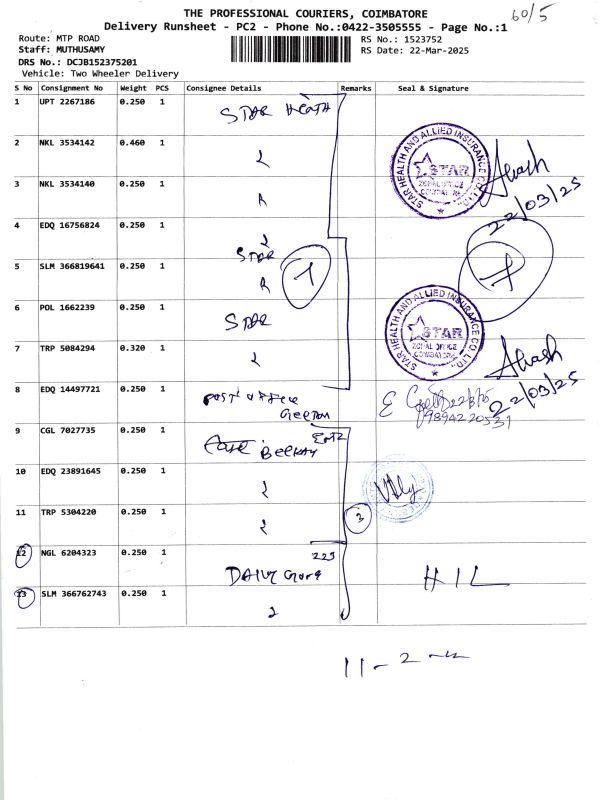 THE PROFESSIONAL COURIERS, COIMBATORE
60/5
Delivery Runsheet - PC2 - Phone No.:0422-3505555 - Page No.:1
Route: MTP ROAD
RS No.: 1523752
Staff: MUTHUSAMY
RS Date: 22-Mar-2025
DRS No.: DCJB152375201
Vehicle: Two Wheeler Delivery
S No Consignment No Weight PCS Consignee Details Remarks Seal & Signature
1 UPT 2267186 0.250 1 STAR HEATH
2 NKL 3534142 0.460 1
STAR HEALTH AND ALLIED INSURANCE CO. LTD.
STAR
ZONAL OFFICE
COIMBATORE
Akash
22/03/25
3 NKL 3534140 0.250 1
4 EDQ 16756824 0.250 1
STAR
5 SLM 366819641 0.250 1
7
6 POL 1662239 0.250 1 STAR
STAR HEALTH AND ALLIED INSURANCE CO. LTD.
STAR
ZONAL OFFICE
COIMBATORE
Akash
22/03/25
7 TRP 5084294 0.320 1
8 EDQ 14497721 0.250 1 POST OFFICE
9894220531
9 CGL 7027735 0.250 1
10 EDQ 23891645 0.250 1
11 TRP 5304220 0.250 1
3
12 NGL 6204323 0.250 1
225
13 SLM 366762743 0.250 1
HIL
11-2-